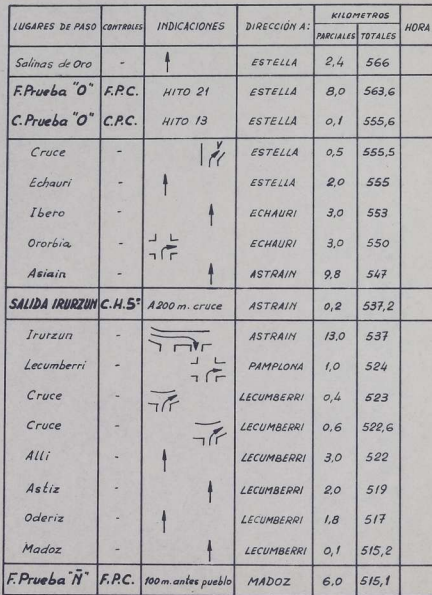 LUGARES DE PASO CONTROLES INDICACIONES DIRECCIÓN A: KILOMETROS HORA
PARCIALES TOTALES
Salinas de Oro - ESTELLA 2,4 566
F.Prueba "O" F.P.C. HITO 21 ESTELLA 8,0 563,6
C.Prueba "O" C.P.C. HITO 13 ESTELLA 0,1 555,6
Cruce - ESTELLA 0,5 555,5
Echauri - ESTELLA 2,0 555
Ibero - ECHAURI 3,0 553
Ororbia - ECHAURI 3,0 550
Asiain - ASTRAIN 9,8 547
SALIDA IRURZUN C.H.5ª A 200 m. cruce ASTRAIN 0,2 537,2
Irurzun - ASTRAIN 13,0 537
Lecumberri - PAMPLONA 1,0 524
Cruce - LECUMBERRI 0,4 523
Cruce - LECUMBERRI 0,6 522,6
Alli - LECUMBERRI 3,0 522
Astiz - LECUMBERRI 2,0 519
Oderiz - LECUMBERRI 1,8 517
Madoz - LECUMBERRI 0,1 515,2
F.Prueba "Ñ" F.P.C. 100 m. antes pueblo MADOZ 6,0 515,1